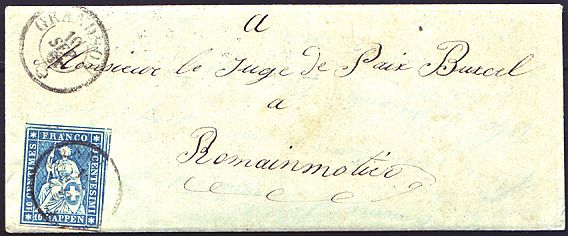 GRANDSON
10
SEPT
a
Monsieur le Juge de Paix
a
Romainmotier
FRANCO
10 CENTIMES
10 CENTESIMI
10 RAPPEN